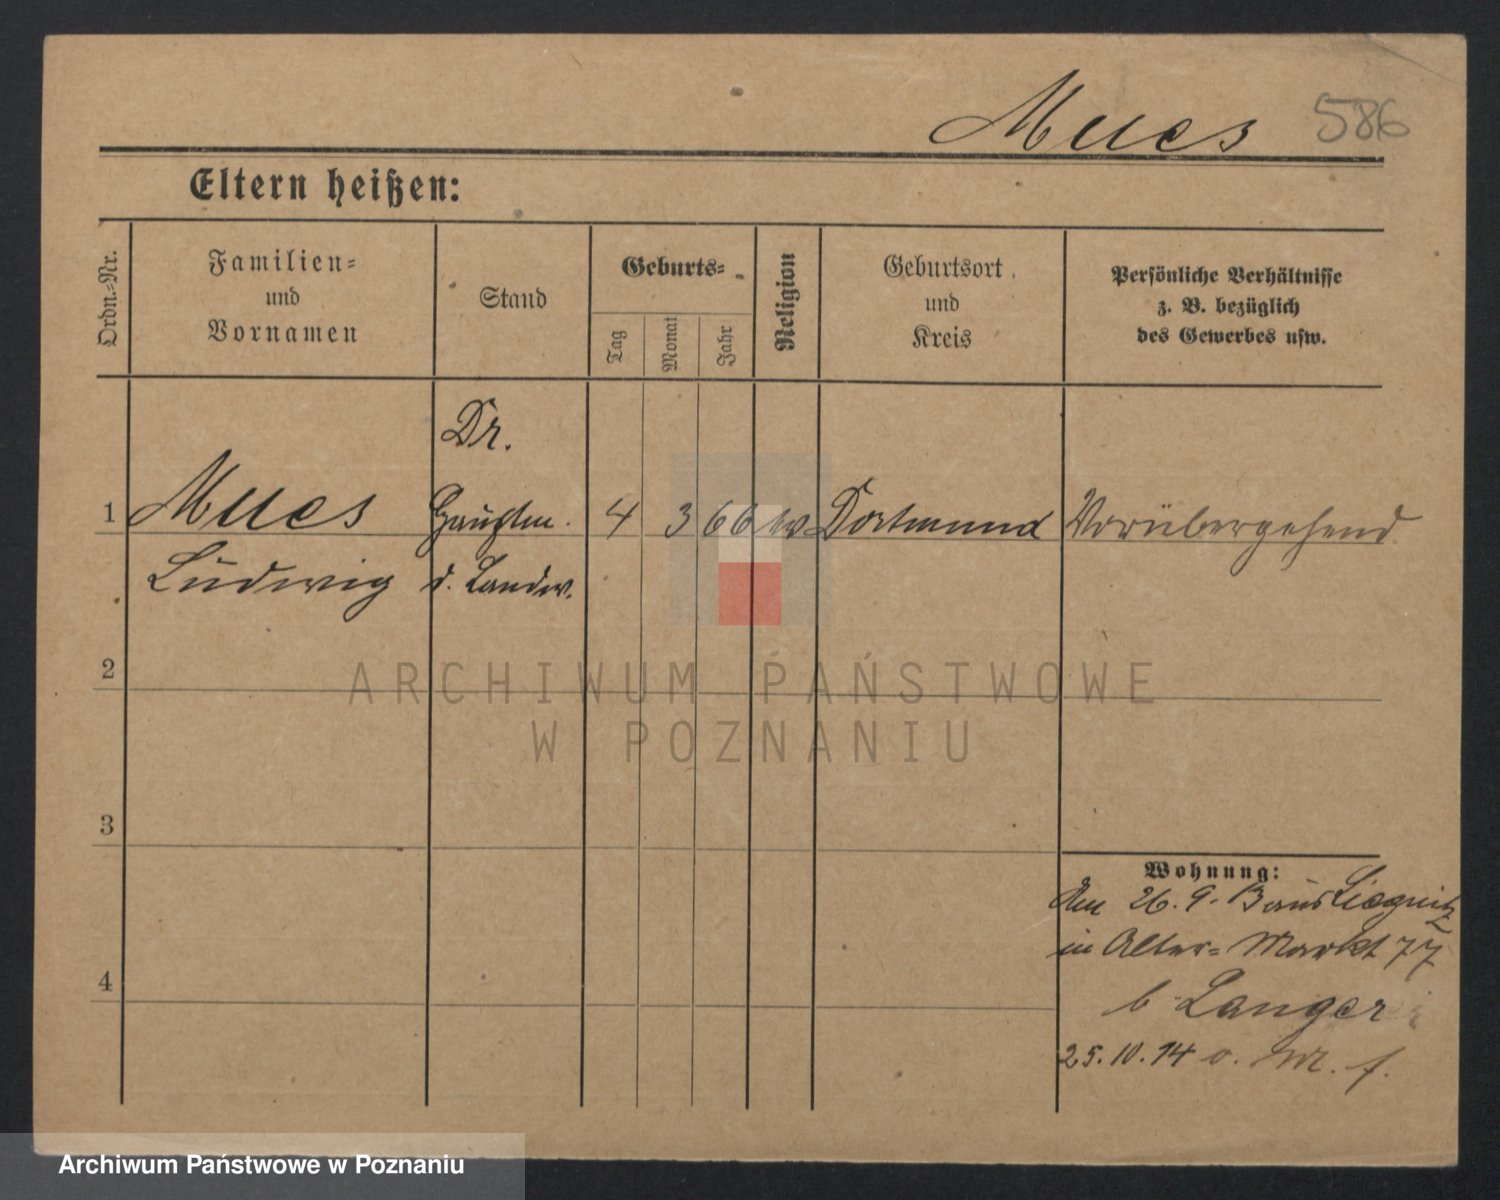 Mues 586
Eltern heißen:
Ordn.-Nr.
Familien-
und
Vornamen
Stand
Geburts-
Tag
Monat
Jahr
Religion
Geburtsort
und
Kreis
Persönliche Verhältnisse
z. B. bezüglich
des Gewerbes usw.
Dr.
1 Mues Hauptm. 4 3 66 Dortmund Vorübergehend
Ludwig d. Landw.
2
3
4
Wohnung:
Am 26. 9. 13 aus Liegnitz
in Alter-Markt 77
b Langer
25. 10. 14 o. M. f.
ARCHIWUM PAŃSTWOWE
W POZNANIU
Archiwum Państwowe w Poznaniu